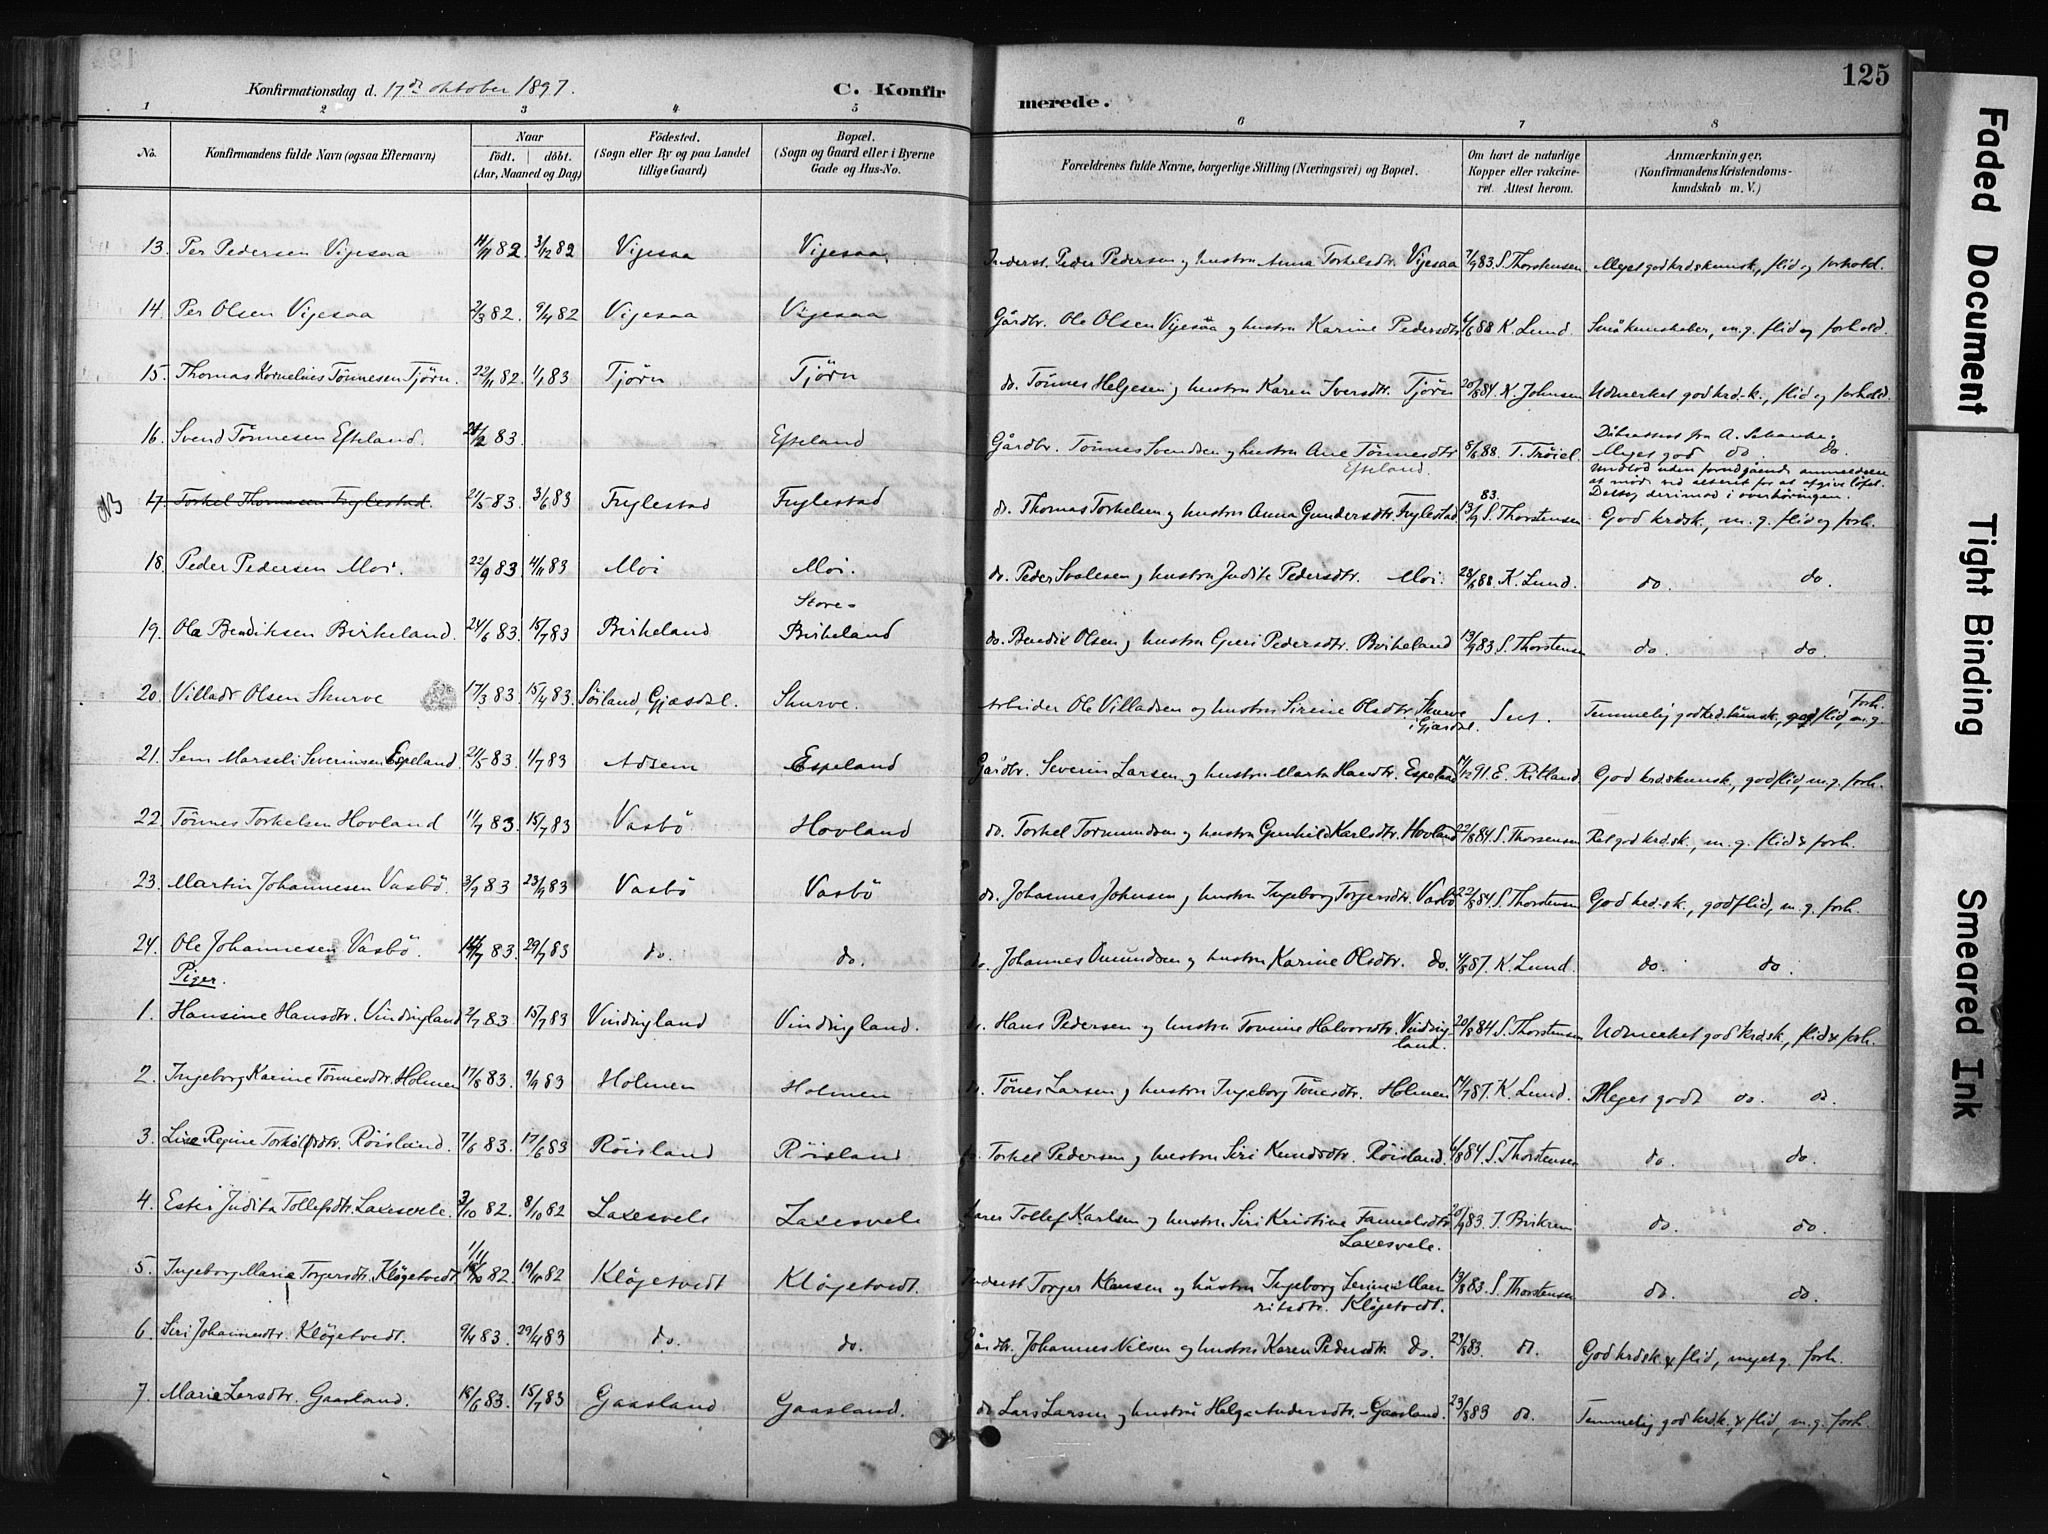 Konfirmationsdag d. 17de oktober 1897.
C. Konfirmerede.
125
1 2 3 4 5 6 7 8
No.
Konfirmandens fulde Navn (ogsaa Efternavn)
Naar
födt. döbt.
(Aar, Maaned og Dag)
Födested.
(Sogn eller By og paa Landet
tillige Gaard)
Bopæl.
(Sogn og Gaard eller i Byerne
Gade og Hus-No.
Forældrenes fulde Navne, borgerlige Stilling (Næringsvei) og Bopæl.
Om havt de naturlige
Kopper eller vakcine-
ret. Attest herom.
Anmærkninger.
(Konfirmandens Kristendoms-
kundskab m. V.)
13. Per Pedersen Vigesaa 82 3/12 82 Vigesaa Vigesaa Inderst. Peder Pedersen og hustru Anna Torkelsdtr. Vigesaa 7/9 83 S. Thorstensen Meget god krdskunsk., flid og forhold.
14. Per Olsen Vigesaa 2/3 82. 9/4 82 Vigesaa Vigesaa Gårdbr. Ole Olsen Vigesaa og hustru Karine Pedersdtr. 6/6 88 K. Lund. Små kunskaber, m.g. flid og forhold.
15. Thomas Kornelius Tönnesen Tjörn. 22/11 82. 1/1 83 Tjörn Tjörn do. Tönnes Helgesen og hustru Karen Iversdtr. Tjörn 20/8 84. K. Johnsen Udmerket god krd.-k., flid og forhold.
16. Svend Tönnesen Efteland. 83. Efteland Gårdbr. Tönnes Svendsen og hustru Ane Tönnesdtr. Efteland. 8/6 88. T. Tröiel. Dåbsattest fra A. Schanche.
Meget god do do.
undlod uden forudgående anmeldelse
at möde ved alteret for at afgive löftet.
Deltog derimod i overhöringen.
NB 17. Torkel Thomasen Fuglestad. 21/5 83 3/6 83 Fuglestad Fuglestad do. Thomas Torkelsen og hustru Anna Gundersdtr. Fuglestad 13/9 83. S. Thorstensen God krdsk., m.g. flid og forh.
18. Peder Pedersen Moi. 22/9 83. 4/11 83 Moi Moi. do. Peder Svalesen og hustru Judite Pedersdtr. Moi. 28/6 88. K. Lund. do do.
19. Ole Bendiksen Birkeland. 24/6 83. 15/7 83 Birkeland Store-Birkeland do. Bendix Olsen og hustru Guri Pedersdtr. Birkeland 13/9 83 S. Thorstensen do. do.
20. Villads Olsen Skurve 17/3 83 15/4 83. Söiland, Gjæsdal. Skurve. Arbeider Ole Villadsen og hustru Sirine Olsdtr. Skurve i Gjæsdal. Sut. Temmelig god krd.kunsk., god flid, m.g. forh.
21. Sem Marseli Severinsen Espeland. 21/5 83 1/7 83 Adsem Espeland Gårdbr. Severin Larsen og hustru Marta Hansdtr. Espeland 91. E. Ritland God krdskunsk., god flid, m.g. forh.
22. Tönnes Torkelsen Hovland 11/7 83. 15/7 83 Vasbö Hovland do. Torkel Tormundsen og hustru Gunhild Karlsdtr. Hovland 22/8 84 S. Thorsensen Ret god krd.sk., m.g. flid & forh.
23. Martin Johannesen Vasbö. 3/9 83 23/9 83 Vasbö Vasbö do. Johannes Johnsen og hustru Ingeborg Torgersdtr. Vasbö 22/8 84 S. Thorstensen God krd.sk., god flid, m.g. forh.
24. Ole Johannesen Vasbö. 83. 29/7 83 do. do. do. Johannes Omundsen og hustru Karine Olsdtr. do. 4/8 87. K. Lund. do. do.
Piger.
1. Hansine Hansdtr. Vindingland 2/7 83 15/7 83 Vindingland Vindingland. do. Hans Pedersen og hustru Tomine Halvorsdtr. Vindingland. 20/8 84 S. Thorstensen Udmerket god krdsk., flid & forh.
2. Ingeborg Karine Tönnesdtr. Holmen 17/8 83. 9/9 83 Holmen Holmen do. Tönes Larsen og hustru Ingeborg Tönesdtr. Holmen 87. K. Lund. Meget godt do. do.
3. Lise Regine Torkelsdtr. Röisland. 7/6 83. 17/6 83 Röisland Röisland do. Torkel Pedersen og hustru Siri Knudsdtr. Röisland. 6/8 84. S. Thorstensen do. do.
4. Ester Judita Tollefsdtr. Laxesvele. 3/10 82. 8/10 82 Laxesvele Laxesvele Tollef Karlsen og hustru Siri Kristine Laxesvele. 20/9 83. J. Bvikrem do. do.
5. Ingeborg Marie Torgersdtr. Klögetvedt. 82 19/11 82 Klögetvedt Klögetvedt. Inderst Torger Hansen og hustru Ingeborg Klögetvedt. 13/8 83. S. Thorstensen do. do.
6. Siri Johannesdtr. Klögetvedt. 9/4 83. 29/4 83 do. do. Gårdbr. Johannes Nilsen og hustru Karen Pedersdtr. do. 23/8 83. do. God krdsk. & flid, meget g. forh.
7. Marie Larsdtr. Gaasland. 18/6 83. 15/7 83 Gaasland Gaasland. do Lars Larsen og hustru Helga Andersdtr. Gaasland. 23/8 83 do. Temmelig god krdsk. & flid, m.g. forh.
Faded Document
Tight Binding
Smeared Ink